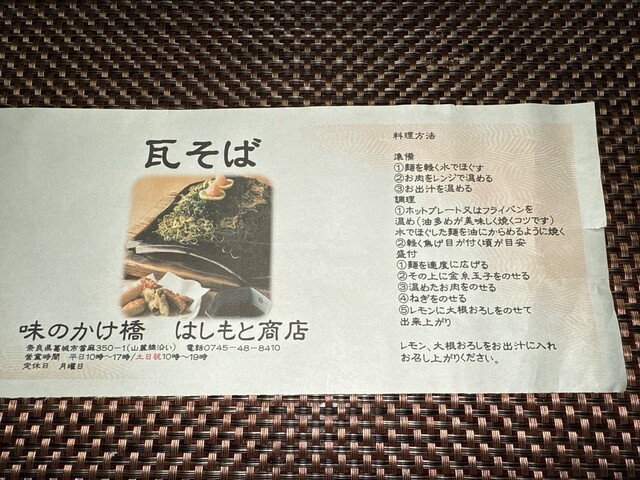 瓦そば
味のかけ橋　はしもと商店
奈良県葛城市當麻350-1(山麓線沿い)　電話0745-48-8410
営業時間　平日10時〜17時/土日祝10時〜19時
定休日　月曜日
料理方法
準備
①麺を軽く水でほぐす
②お肉をレンジで温める
③お出汁を温める
調理
①ホットプレート又はフライパンを
温め(油多めが美味しく焼くコツです)
水でほぐした麺を油にからめるように焼く
②軽く焦げ目が付く頃が目安
盛付
①麺を適度に広げる
②その上に金糸玉子をのせる
③温めたお肉をのせる
④ねぎをのせる
⑤レモンに大根おろしをのせて
出来上がり
レモン、大根おろしをお出汁に入れ
お召し上がりください。